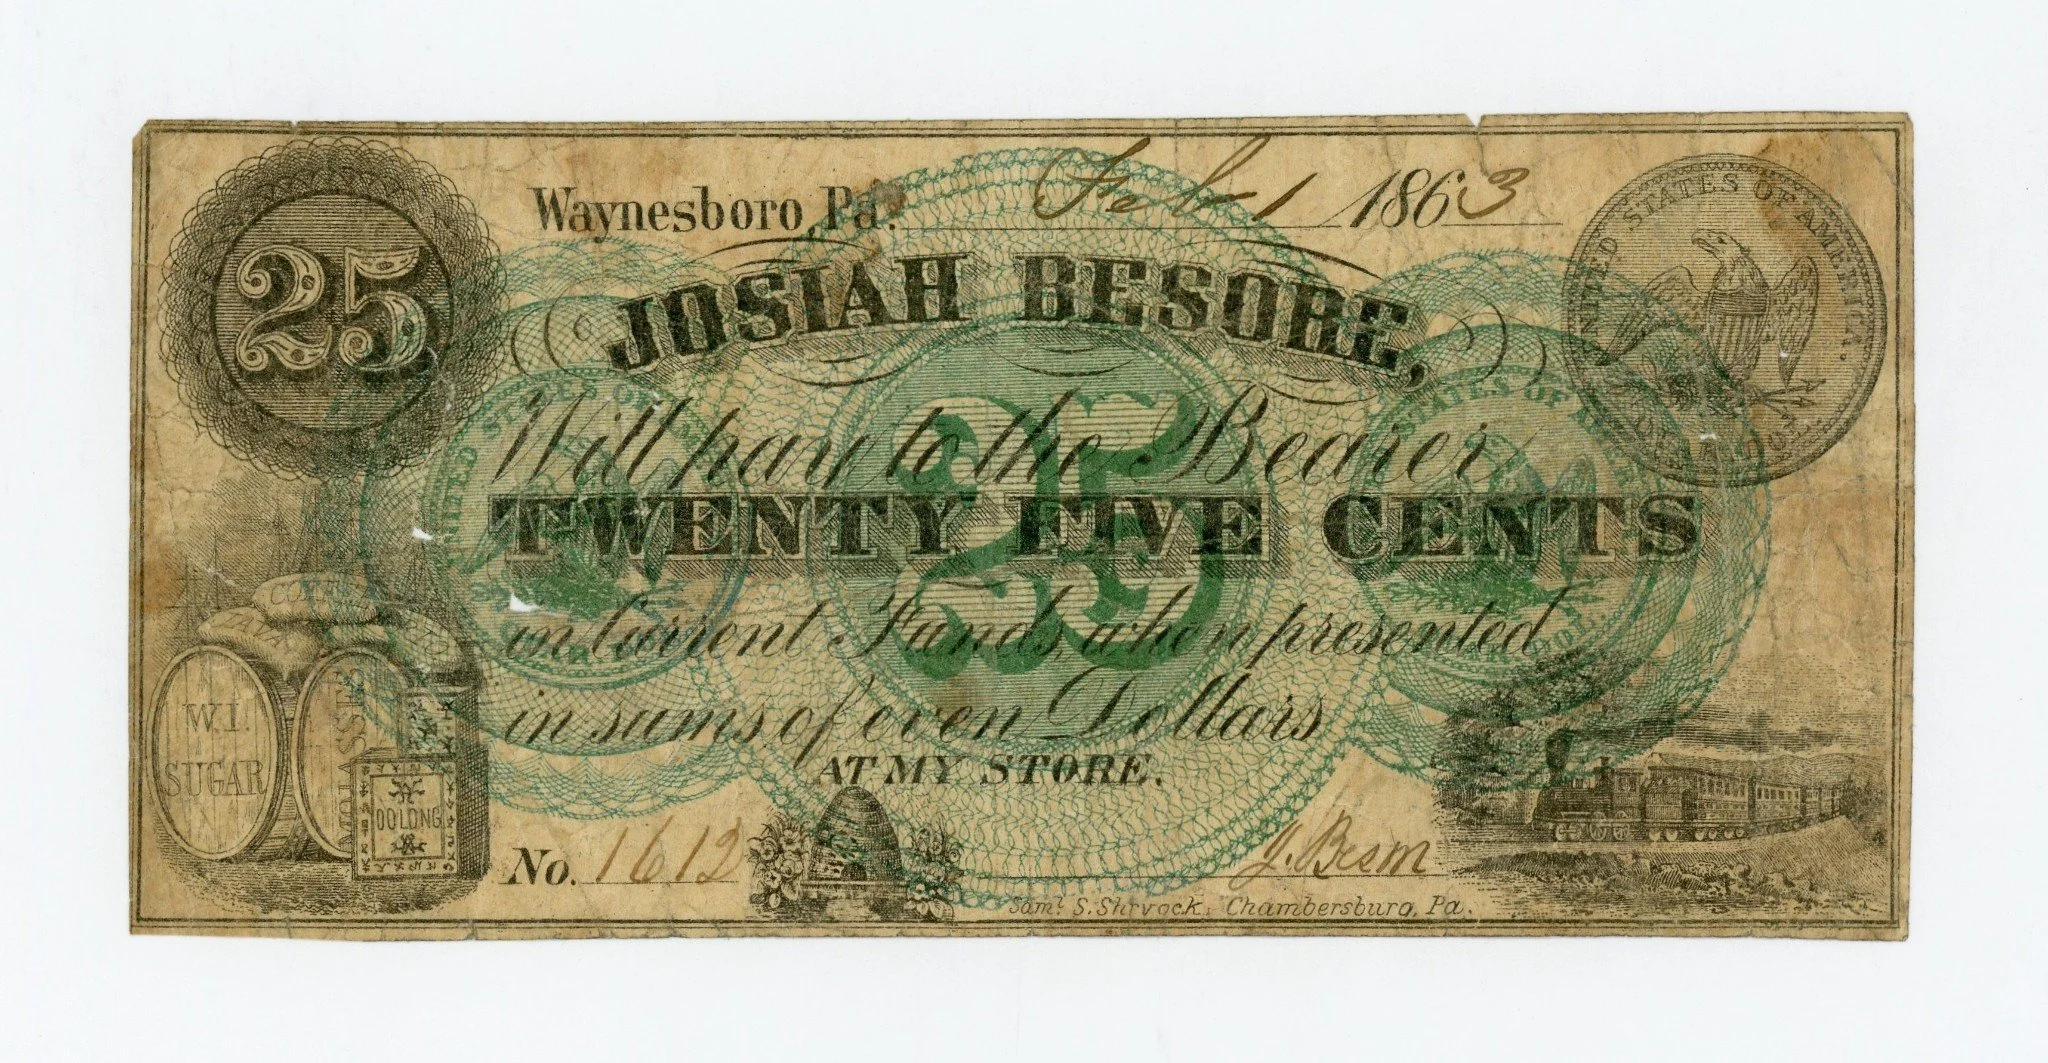 25
Waynesboro, Pa. Feb 1 1863
UNITED STATES OF AMERICA.
JOSIAH BESORE,
Will pay to the Bearer
25
TWENTY FIVE CENTS
in Current Funds, when presented
in sums of even Dollars
AT MY STORE.
UNITED STATES OF
STATES OF
QUAR. DOL.
COFFEE
JAVA
W.I.
SUGAR
MOLASSES
OOLONG
No. 1612
J. Besore
Saml. S. Shryock, Chambersburg, Pa.